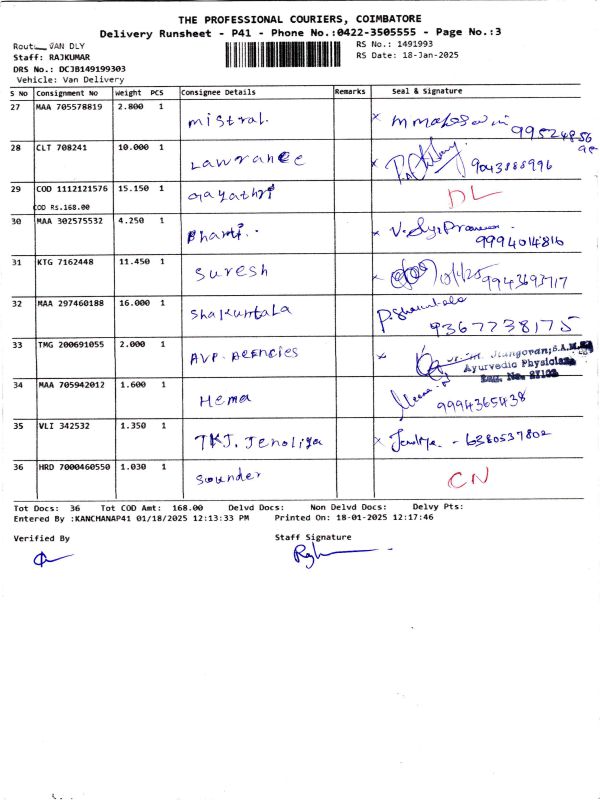 THE PROFESSIONAL COURIERS, COIMBATORE
Delivery Runsheet - P41 - Phone No.:0422-3505555 - Page No.:3
Route VAN DLY
RS No.: 1491993
Staff: RAJKUMAR
RS Date: 18-Jan-2025
DRS No.: DCJB149199303
Vehicle: Van Delivery
S No Consignment No Weight PCS Consignee Details Remarks Seal & Signature
27 MAA 705578819 2.800 1 Mistral. x 99524856
28 CLT 708241 10.000 1 Lawrance x 9043888996
29 COD 1112121576 15.150 1 Gayathri DL
COD Rs.168.00
30 MAA 302575532 4.250 1 Bharti.. x 9994014816
31 KTG 7162448 11.450 1 Suresh x 9943693717
32 MAA 297460188 16.000 1 Shakuntala 9367738175
33 TMG 200691055 2.000 1 AVP. Agencies x
Ayurvedic Physician
34 MAA 705942012 1.600 1 Hema 9994365438
35 VLI 342532 1.350 1 TKJ. Jenoliya x - 6380537802
36 HRD 7000460550 1.030 1 Sounder CN
Tot Docs: 36 Tot COD Amt: 168.00 Delvd Docs: Non Delvd Docs: Delvy Pts:
Entered By :KANCHANAP41 01/18/2025 12:13:33 PM Printed On: 18-01-2025 12:17:46
Verified By Staff Signature